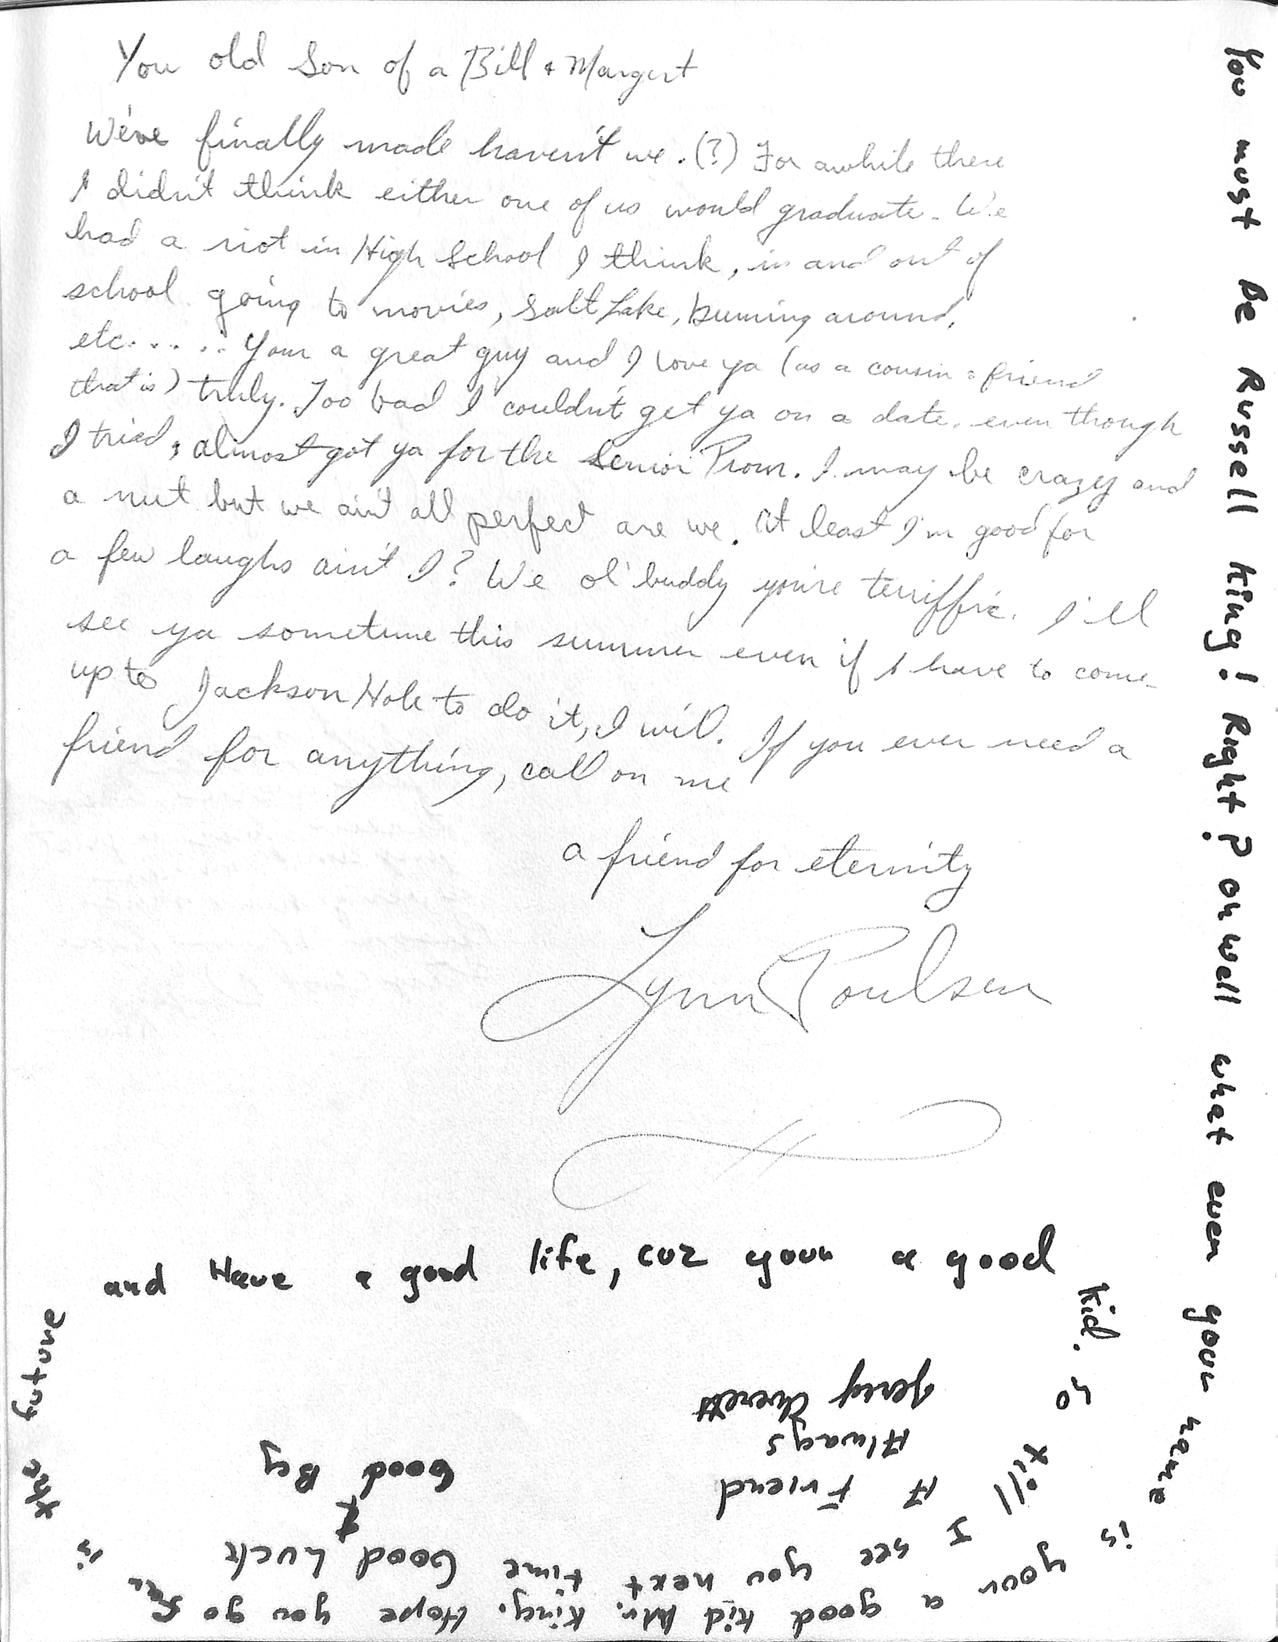 You old Son of a Bill & Margert
We've finally made haven't we. (?) For awhile there
I didn't think either one of us would graduate. We
had a riot in High School I think, in and out of
school going to movies, Salt Lake, bumming around,
etc...... Your a great guy and I love ya (as a cousin & friend
that is) truly. Too bad I couldn't get ya on a date, even though
I tried, & almost got ya for the Senior Prom. I may be crazy and
a nut but we ain't all perfect are we. At least I'm good for
a few laughs ain't I? We ol' buddy you're terriffic. I'll
see ya sometime this summer even if I have to come
up to Jackson Hole to do it, I will. If you ever need a
friend for anything, call on me
a friend for eternity
Lynn Poulsen
You must Be Russell King! Right? oh well what ever your name is your a good kid Mr. King. Hope you go far in the future
and Have a good life, cuz your a good kid. so till I see you next time Good Luck
& Good By
A Friend
Always
Jerry Everett